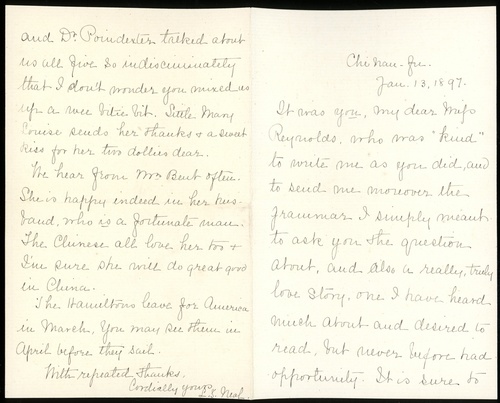 Chi nau-fu.
Jan. 13, 1897.
It was you, my dear Miss
Reynolds, who was "kind"
to write me as you did, and
to send me moreover the
grammar I simply meant
to ask you the question
about, and also a really, truly
love story, one I have heard
much about and desired to
read, but never before had
opportunity. It is sure to
and Dr. Poindexter talked about
us all five so indiscriminately
that I don't wonder you mixed us
up a wee bitie bit. Little Mary
Louise sends her thanks & a sweet
kiss for her two dollies dear.
We hear from Mrs Bent often.
She is happy indeed in her hus-
band, who is a fortunate man.
The Chinese all love her too &
I'm sure she will do great good
in China.
The Hamiltons leave for America
in March. You may see them in
April before they sail.
With repeated thanks.
Cordially yours
L. S. Neal.